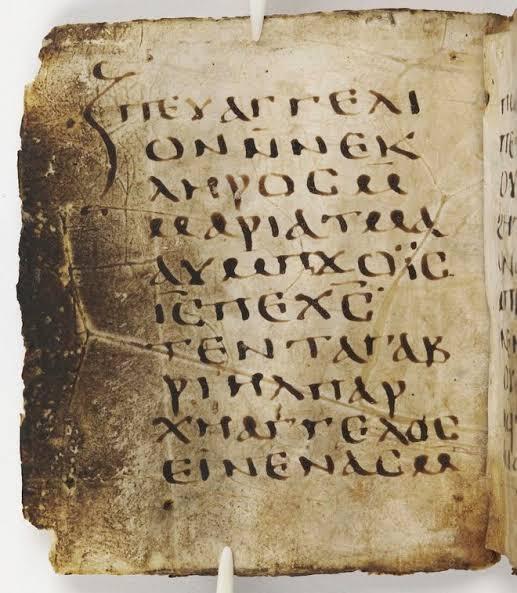 ⲡⲉⲩⲁⲅⲅⲉⲗⲓ
ⲟⲛⲛ̄ⲛⲉⲕ
ⲗⲏⲣⲟⲥⲙ̄
ⲙⲁⲣⲓⲁⲧⲙⲁ
ⲁⲩⲙⲡϫⲟⲓ̈ⲥ
ⲓ̅ⲥ̅ⲡⲉⲭ̅ⲥ̅
ⲧⲉⲛⲧⲁⲅⲁⲃ
ⲣⲓⲏⲗⲡⲁⲣ
ⲭⲏⲁⲅⲅⲉⲗⲟⲥ
ⲉⲓⲛⲉⲛⲁⲥⲙ̄